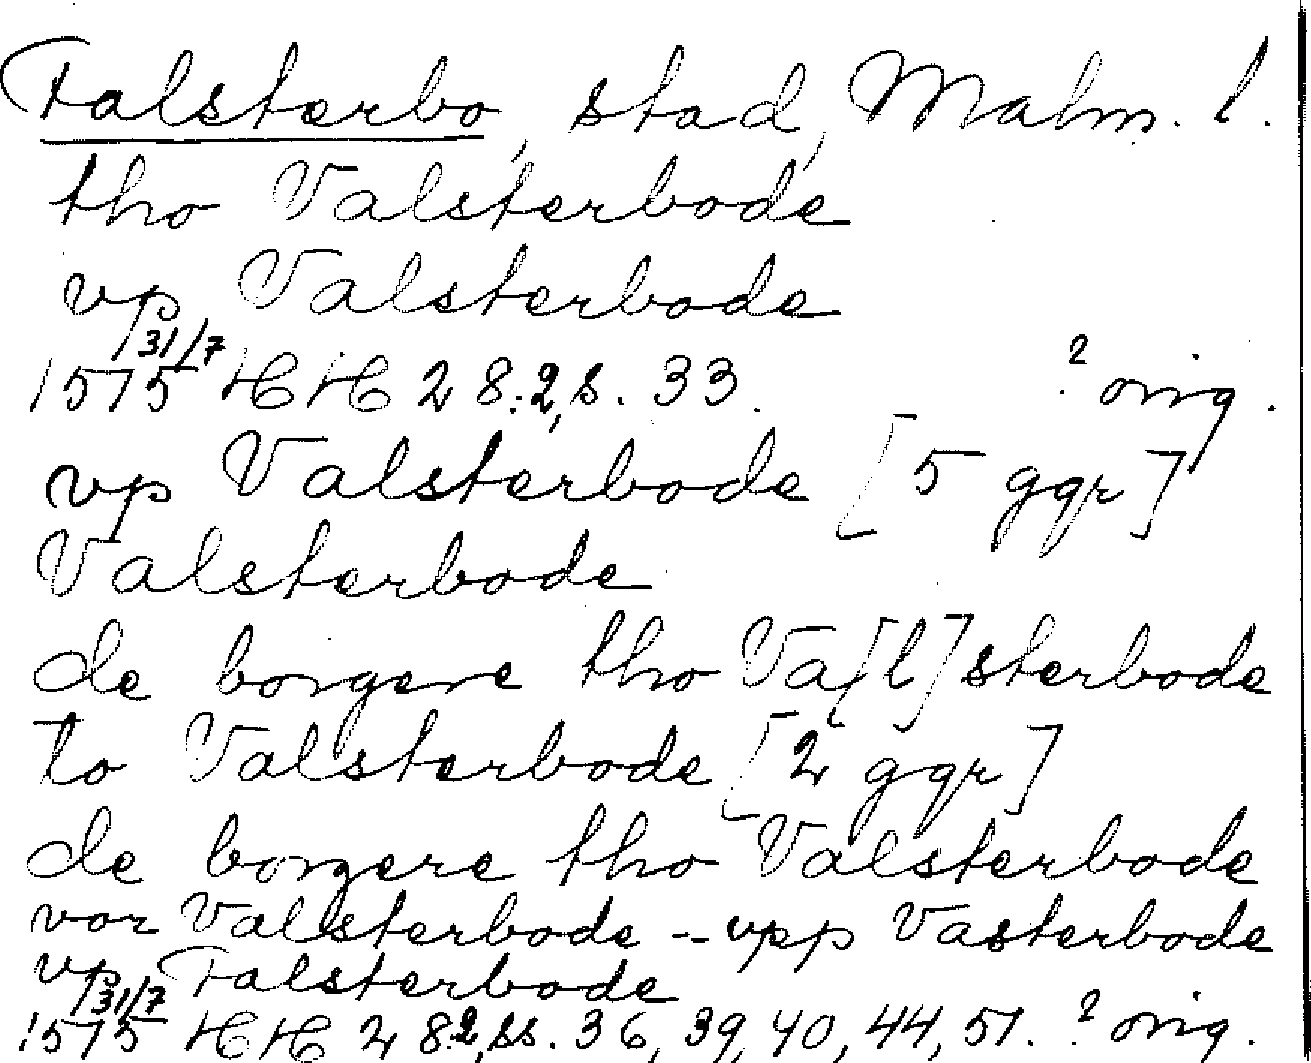 Falsterbo, stad, Malm. l.
tho Valsterbode
vp Valsterbode
1575 31/7 HH 28:2, s. 33. ? orig.
vp Valsterbode [5 ggr]
Valsterbode
de borgere tho Va[l]sterbode
to Valsterbode [2 ggr]
de borgere tho Valsterbode
vor Valsterbode -- vpp Vasterbode
vp Falsterbode
1575 31/7 HH 28:2, ss. 36, 39, 40, 44, 51. ? orig.